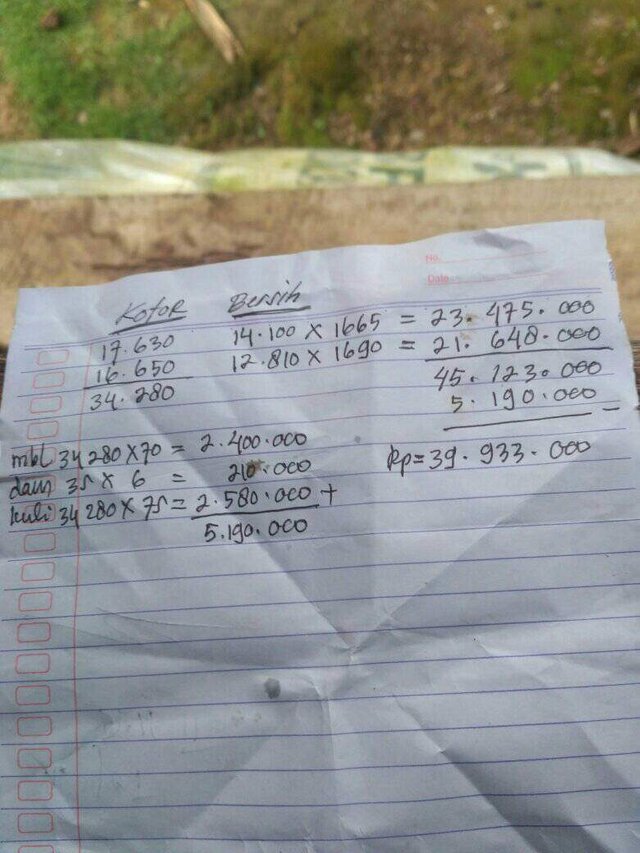 No.
Date
Kotor Bersih
17.630 14.100 X 1665 = 23.475.000
16.650 12.810 X 1690 = 21.648.000
34.280 45.123.000
5.190.000 -
Rp = 39.933.000
mbl 34 280 X 70 = 2.400.000
daun 35 X 6 = 210.000
kuli 34 280 X 75 = 2.580.000 +
5.190.000